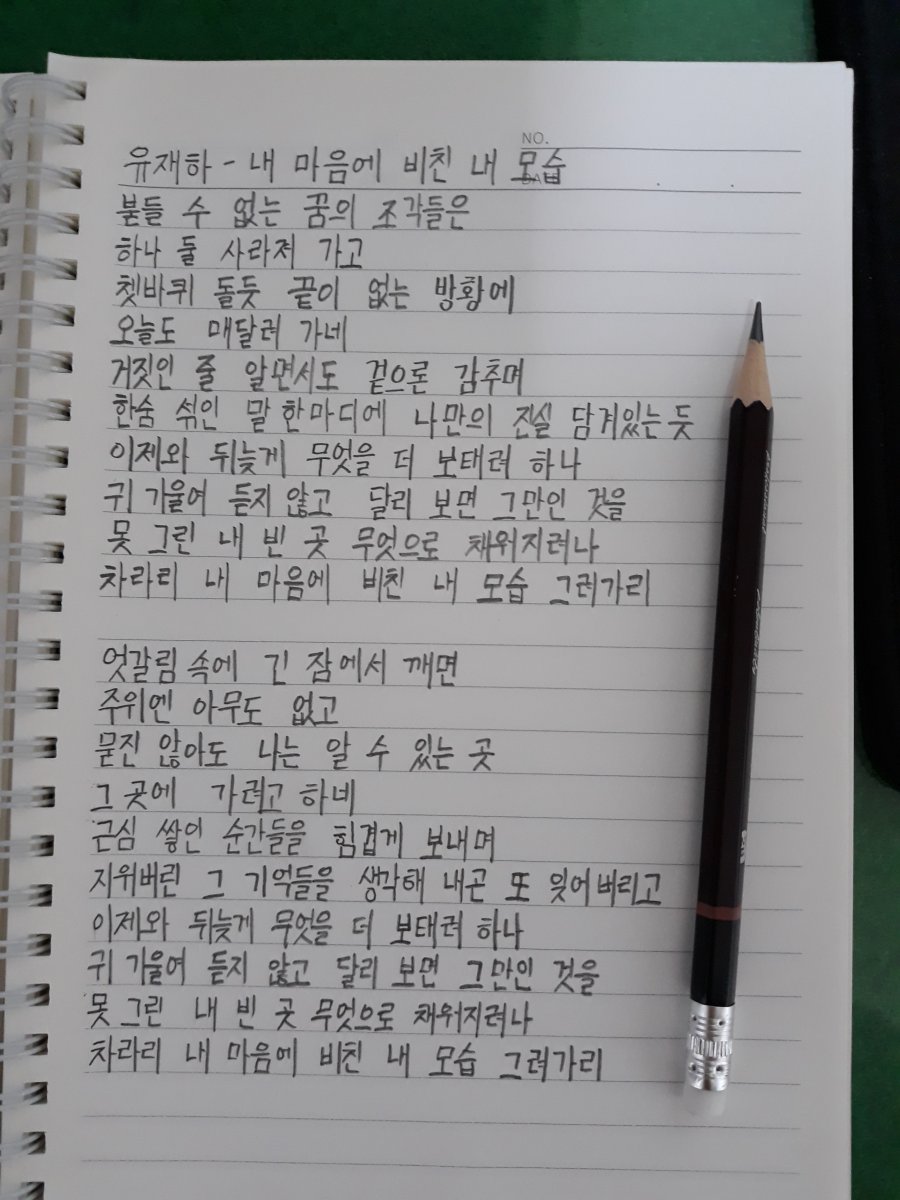 NO.
유재하 - 내 마음에 비친 내 모습
붙들 수 없는 꿈의 조각들은
하나 둘 사라져 가고
쳇바퀴 돌듯 끝이 없는 방황에
오늘도 매달려 가네
거짓인 줄 알면서도 겉으론 감추며
한숨 섞인 말 한마디에 나만의 진실 담겨있는 듯
이제와 뒤늦게 무엇을 더 보태려 하나
귀 기울여 듣지 않고 달리 보면 그만인 것을
못 그린 내 빈 곳 무엇으로 채워지려나
차라리 내 마음에 비친 내 모습 그려가리
엇갈림 속에 긴 잠에서 깨면
주위엔 아무도 없고
묻진 않아도 나는 알 수 있는 곳
그 곳에 가려고 하네
근심 쌓인 순간들을 힘겹게 보내며
지워버린 그 기억들을 생각해 내곤 또 잊어버리고
이제와 뒤늦게 무엇을 더 보태려 하나
귀 기울여 듣지 않고 달리 보면 그만인 것을
못 그린 내 빈 곳 무엇으로 채워지려나
차라리 내 마음에 비친 내 모습 그려가리